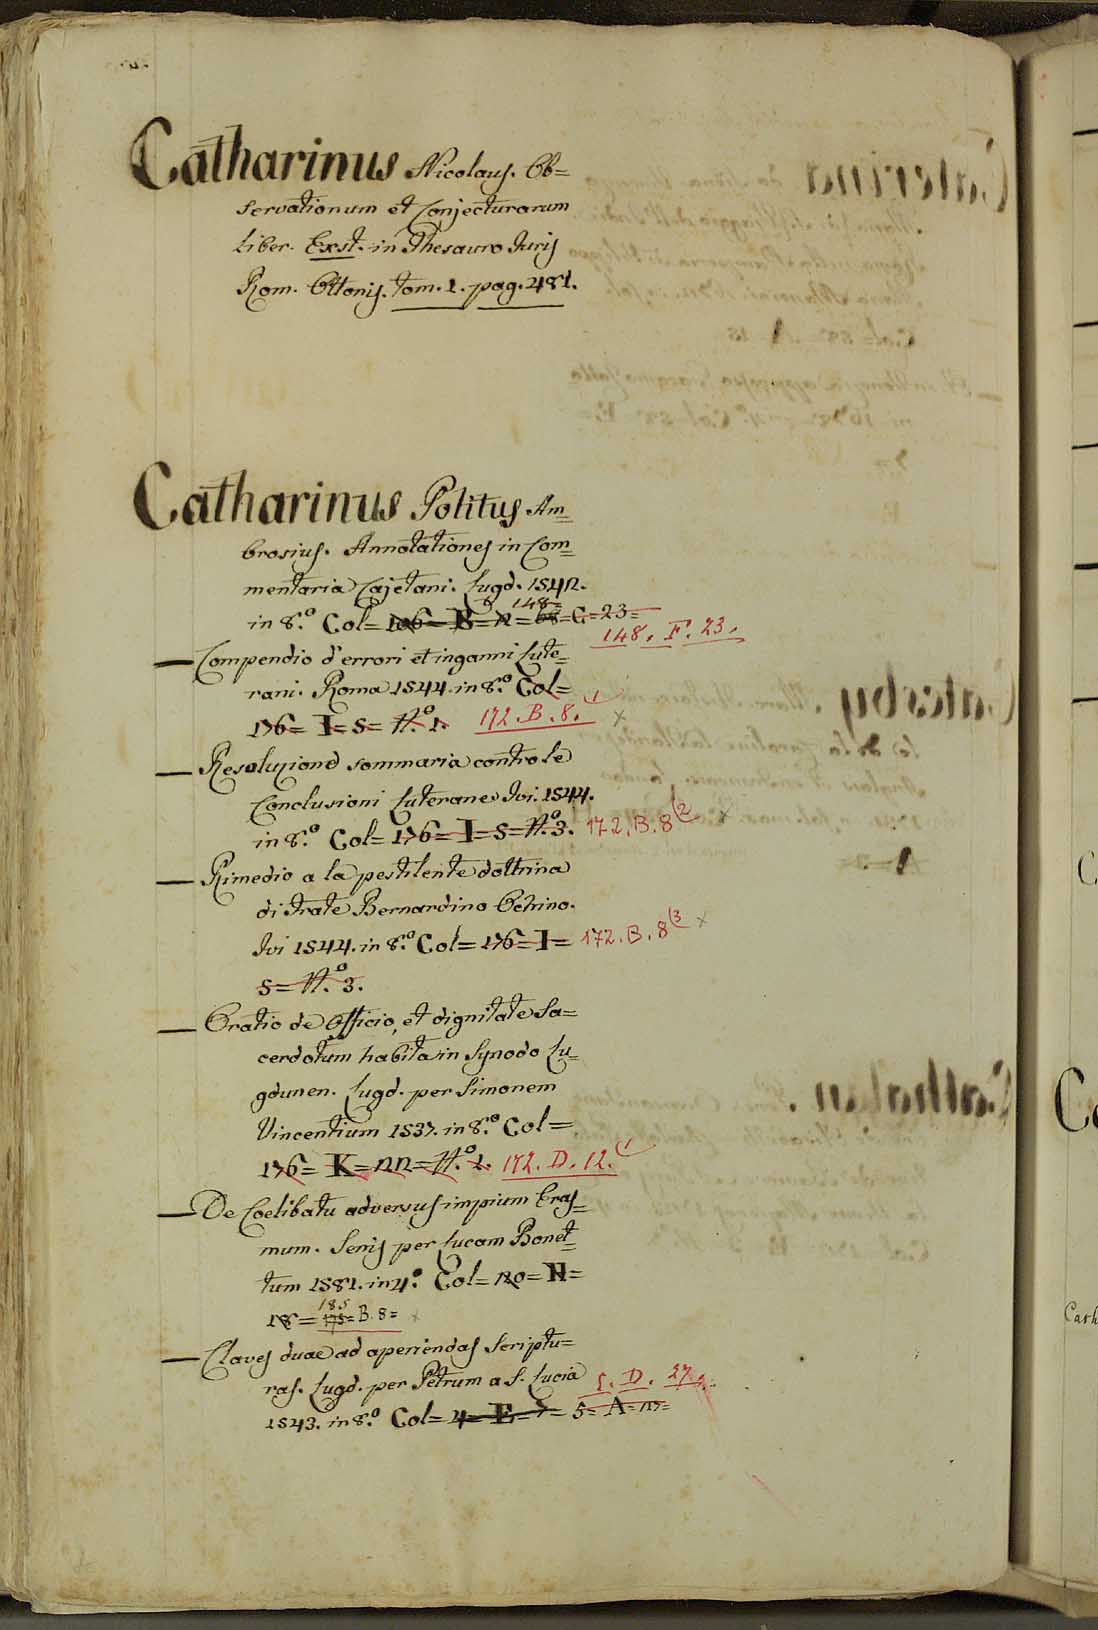 Catharinus Nicolaus. Ob=
servationum et Conjecturarum
Liber. Exst. in Thesauro Juris
Rom. Ottonis. tom. 1. pag. 481.
Catharinus Politus Am=
brosius. Annotationes in Com=
mentaria Cajetani. Lugd. 1542.
in 8.º Col= 106= B= 12= 148= 68= C= 23=
148. F. 23.
— Compendio d'errori et inganni Lute=
rani. Roma 1544. in 8.º Col=
176= I= S= N.º 1. 172. B. 8. (1
— Resoluzione sommaria contro le
Conclusioni Luterane Ivi. 1544.
in 8.º Col= 176= I= S= N.º 3. 172. B. 8 (2
— Rimedio a la pestilente dottrina
di frate Bernardino Ochino.
Ivi 1544. in 8.º Col= 176= I= 172. B. 8 (3
S= N.º 3.
— Oratio de Officio, et dignitate Sa=
cerdotum habita in Synodo Lu=
gdunen. Lugd. per Simonem
Vincentium 1537. in 8.º Col=
176= K= 22= N.º 1. 172. D. 12. (1
— De Coelibatu adversus impium Eras=
mum. Senis per Lucam Bonet=
tum 1581. in 4.º Col= 120= N=
18= 185 175= B. 8=
— Claves duae ad aperiendas Scriptu=
ras. Lugd. per Petrum a S. Lucia
5. D. 27
1543. in 8.º Col= 4= E= 7= 5= A= 17=